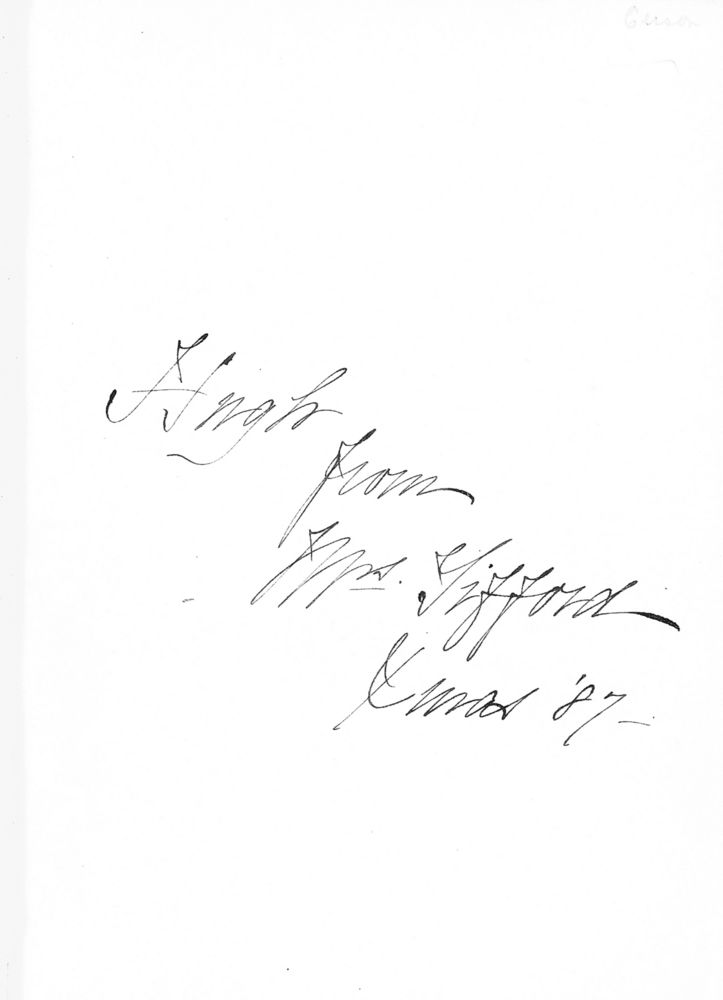 Hugh
from
Mrs. Gifford
Xmas '87